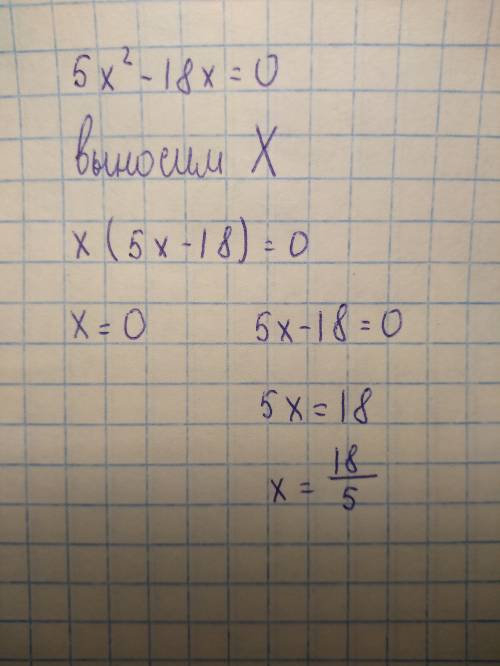 5x² - 18x = 0
выносим X
x(5x - 18) = 0
x = 0 5x - 18 = 0
5x = 18
x = 18/5